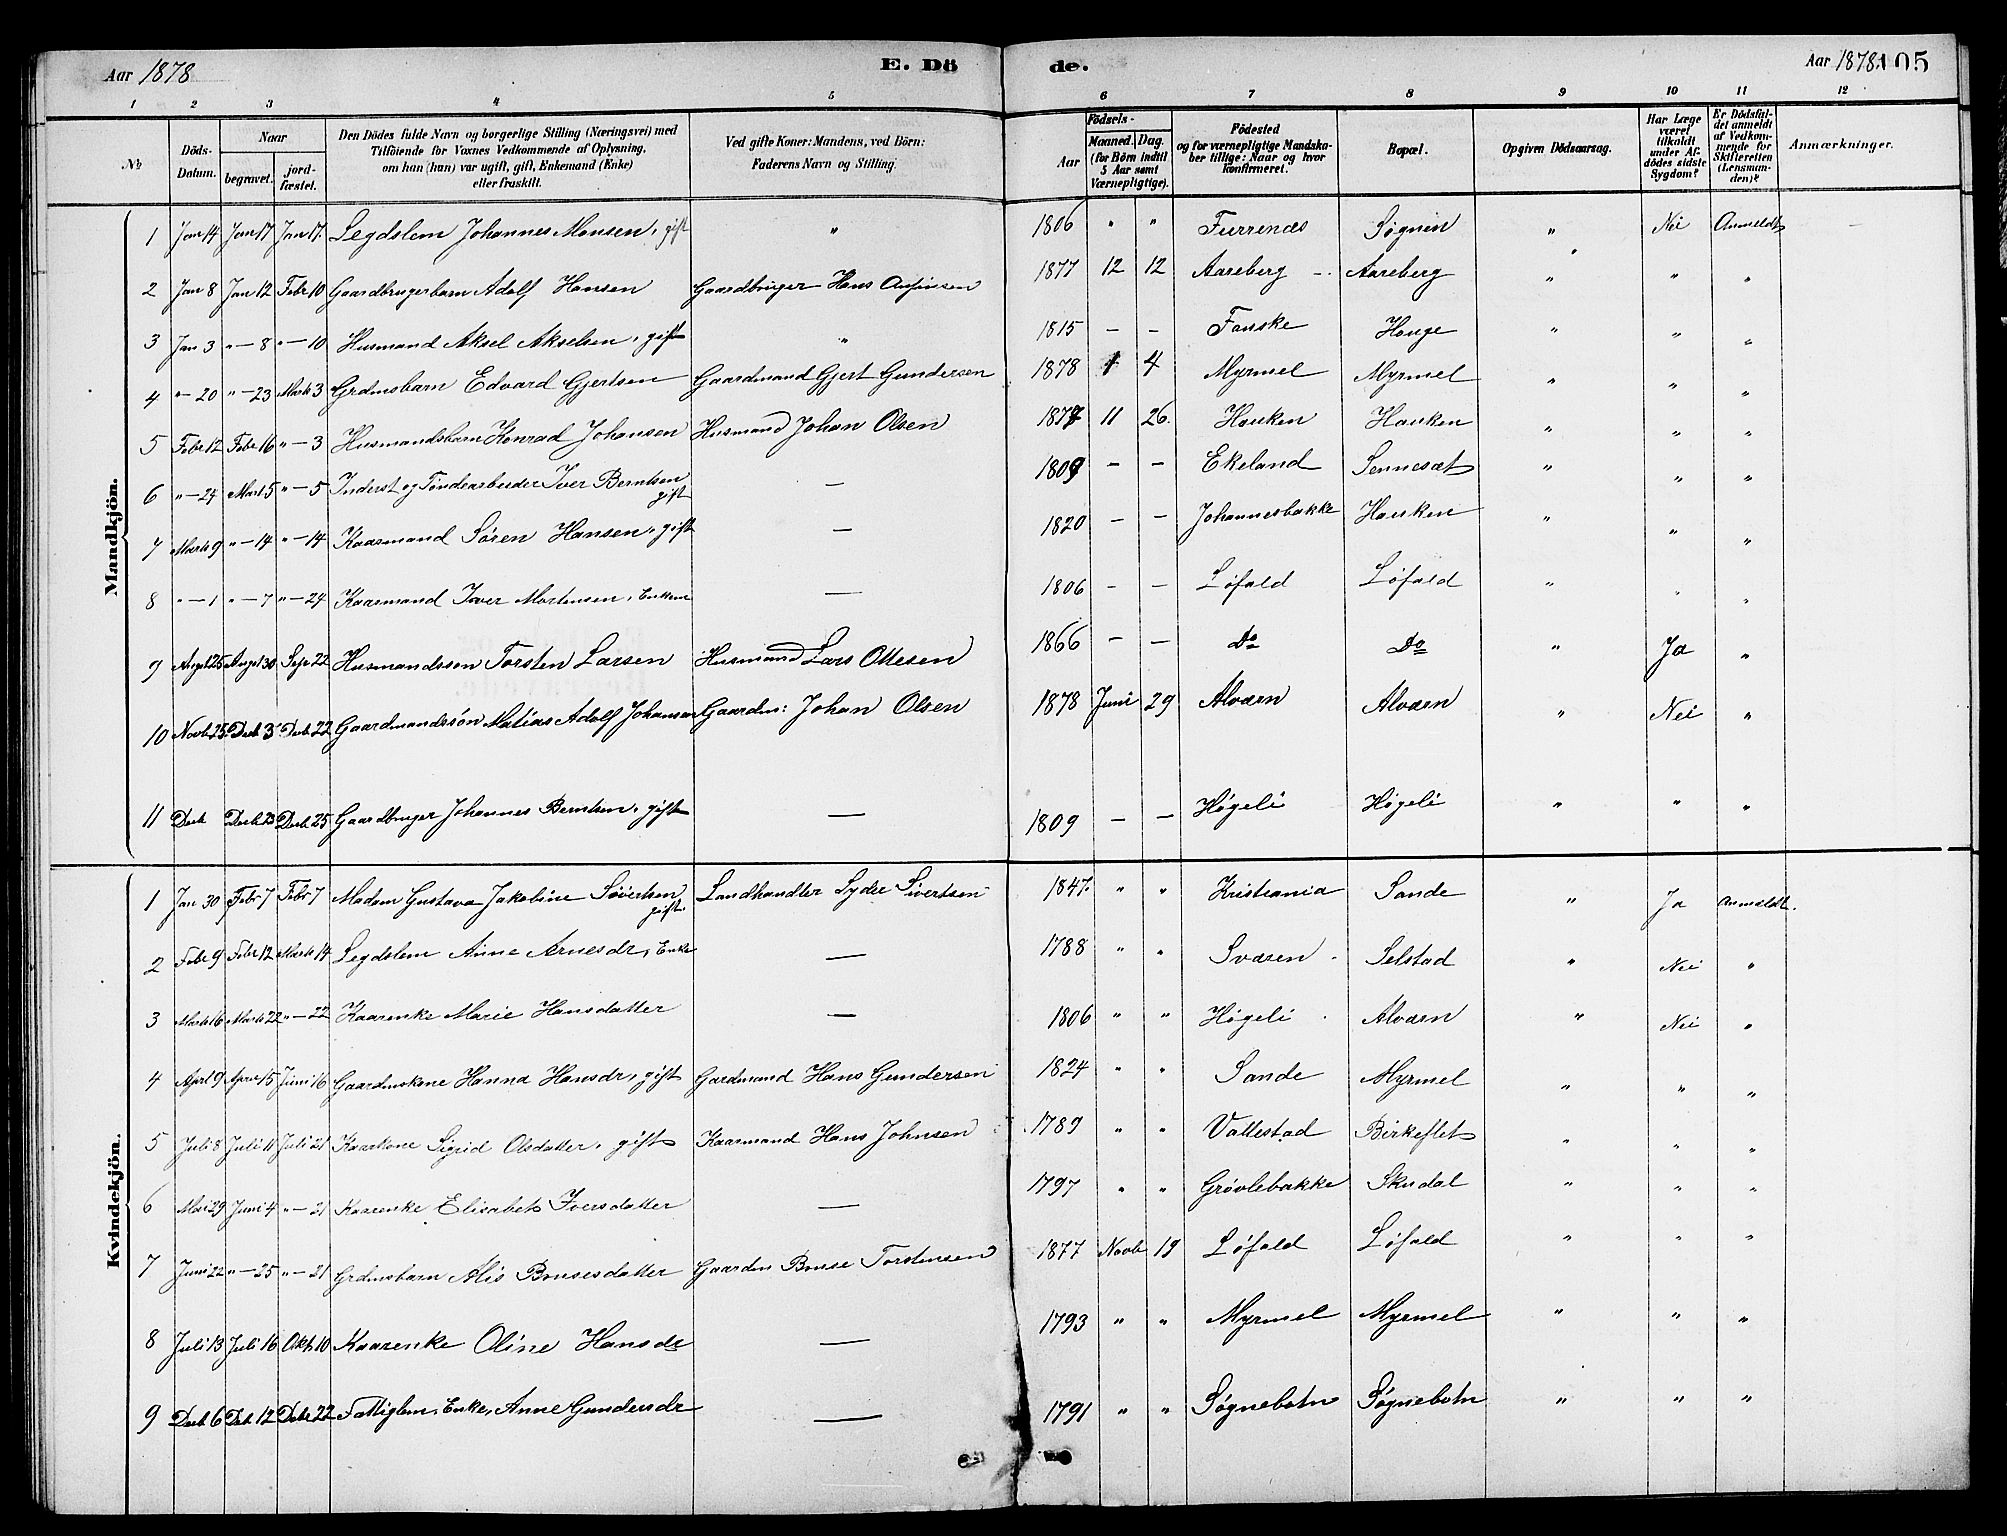 Aar 1878 E. Dö de. Aar 1878. 105
1 2 3 4 5 6 7 8 9 10 11 12
No
Döds-Datum.
Naar
begravet.
jordfæstet.
Den Dödes fulde Navn og borgerlige Stilling (Næringsvei) med
Tilföiende for Voxnes Vedkommende af Oplysning,
om han (hun) var ugift, gift, Enkemand (Enke)
eller fraskilt.
Ved gifte Koner: Mandens, ved Börn:
Faderens Navn og Stilling.
Födsels-
Aar
Maaned. Dag.
(for Börn indtil
5 Aar samt
Værnepligtige).
Födested
og for værnepligtige Mandskaber tillige: Naar og hvor
konfirmeret.
Bopæl.
Opgiven Dödsaarsag.
Har Læge
været
tilkaldt
under Afdödes sidste
Sygdom?
Er Dödsfaldet anmeldt
af Vedkommende for
Skifteretten
(Lensmanden)?
Anmærkninger.
Mandkjön.
1 Jan 14 Jan 17 Jan 17. Legdslem Johannes Monsen, gift " 1806 " " Furrenes Søgnin " Nei Anmeldt —
2 Jan 8 Jan 12 Febr 10 Gaardbrugerbarn Adolf Hansen Gaardbruger Hans Anfinsen 1877 12 12 Aareberg Aareberg " " "
3 Jan 3 " — 8 " — 10 Husmand Aksel Akselsen, gift " 1815 — — Fanske Houge " " "
4 " — 20 " — 23 Marts 3 Grdmsbarn Edvard Gjertsen Gaardmand Gjert Gundersen 1878 1 4 Myrmel Myrmel " " "
5 Febr 12 Febr 16 " — 3 Husmandsbarn Konrad Johansen Husmand Johan Olsen 1877 11 26. Hauken Hauken " " "
6 " — 24 Mart 5 " — 5 Inderst og Tøndearbeider Iver Berntsen gift — 1809 — — Ekeland Sennesæt " " "
7 Marts 9 " — 14 " — 14 Kaarmand Søren Hansen, gift — 1820 — — Johannesbakke Hauken " " "
8 " — 1 " — 7 " — 24 Kaarmand Iver Mortensen, Enkem — 1806 — — Løfald Løfald " " "
9 Augst 25 Augst 30 Sept 22 Husmandssøn Torsten Larsen Husmand Lars Ottesen 1866 — — Do Do " Ja "
10 Novb 25 Decb 3 Decb 22 Gaardmandssøn Matias Adolf Johansen Gaardm: Johan Olsen 1878 Juni 29 Alværn Alværn " Nei "
11 Decb Decb 23 Decb 25 Gaardbruger Johannes Berntsen, gift — 1809 — — Høgeli Høgeli " " "
Kvindekjön.
1 Jan 30 Febr 7 Febr 7 Madam Gustava Jakobine Sivertsen gift. Landhandler Syder Sivertsen 1847. " " Kristiania Sande " Ja Anmeldt.
2 Febr 9 Febr 12 Marts 14 Legdslem Anne Arnesdr, Enke — 1788 " " Svæsen Selstad " Nei "
3 Marts 16 Marts 22 " — 22 Kaarenke Marie Hansdatter — 1806 " " Høgeli Alværn " Nei "
4 April 9 April 15 Juni 16 Gaardmskone Hanna Hansdr, gift Gardmand Hans Gundersen 1824 " " Sande Myrmel " " "
5 Juli 8 Juli 11 Juli 21 Kaarkone Sigrid Olsdatter, gift Kaarmand Hans Johnsen 1789 " " Vallestad Birkeflet " " "
6 Mai 29 Juni 4 " — 21 Kaarenke Elisabet Iversdatter — 1797 " " Grøvlebakke Skudal " " "
7 Juni 22 " — 25 " — 21 Grdmsbarn Alis Brusesdatter Gaardm Bruse Torstensen 1877 Novb 19 Løfald Løfald " " "
8 Juli 13 Juli 16 Okt 10 Kaarenke Oline Hansdr — 1793 " " Myrmel Myrmel " " "
9 Decb 6 Decb 12 Decbr 22 Fattiglem, Enke, Anne Gundersdr — 1791 " " Søgnebotn Søgnebotn " " "